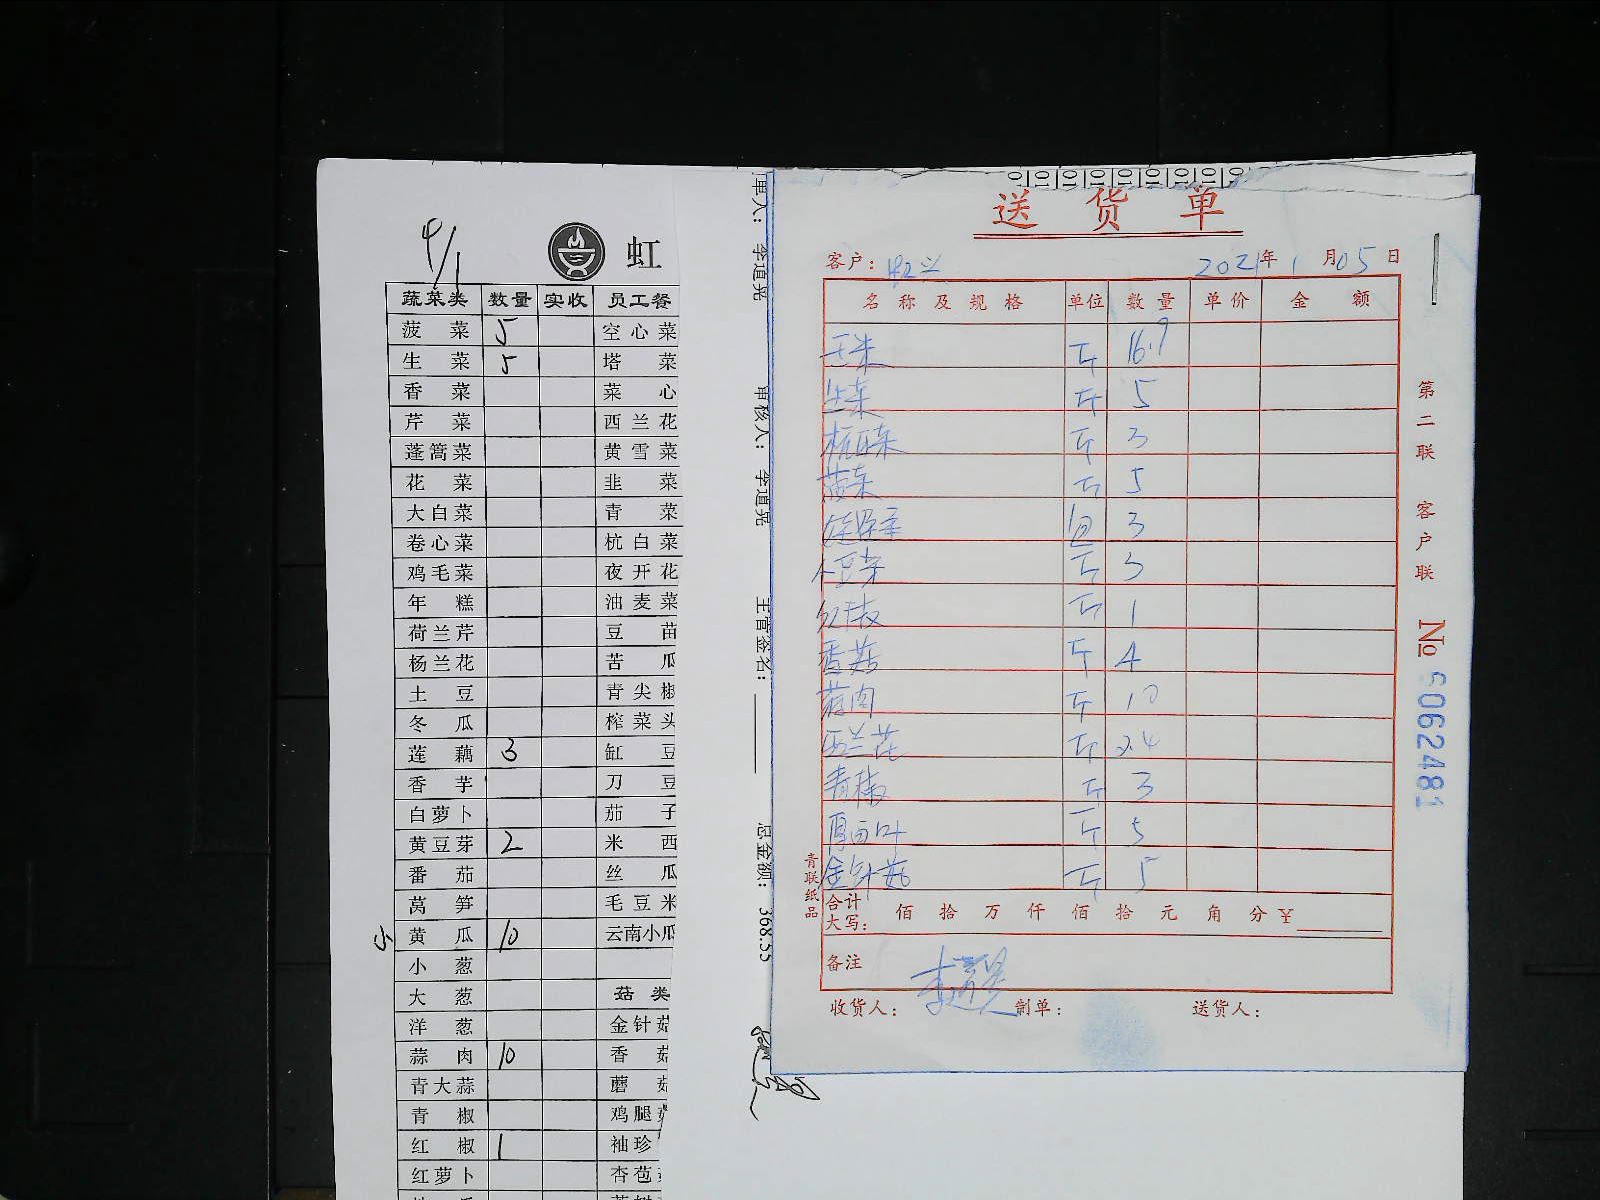 4/1
虹
蔬菜类 数量 实收 员工餐
菠菜 5 空心菜
生菜 5 塔菜
香菜 菜心
芹菜 西兰花
蓬篙菜 黄雪菜
花菜 韭菜
大白菜 青菜
卷心菜 杭白菜
鸡毛菜 夜开花
年糕 油麦菜
荷兰芹 豆苗
杨兰花 苦瓜
土豆 青尖椒
冬瓜 榨菜头
莲藕 3 缸豆
香芋 刀豆
白萝卜 茄子
黄豆芽 2 米西
番茄 丝瓜
莴笋 毛豆米
5 黄瓜 10 云南小瓜
小葱
大葱 菇类
洋葱 金针菇
蒜肉 10 香菇
青大蒜 蘑菇
青椒 鸡腿
红椒 1 袖珍
红萝卜 杏苞
单人： 李道晃
审核人： 李道晃
主管签名：
总金额： 368.55
送货单
客户： 虹兴 2021年1月05日
名称及规格 单位 数量 单价 金额
玉米 斤 16.9
生菜 斤 5
杭白菜 斤 3
菠菜 斤 5
包 3
小豆芽 斤 3
红椒 斤 1
香菇 斤 4
蒜肉 斤 10
西兰花 斤 2.4
青椒 斤 3
厚百叶 斤 5
金针菇 斤 5
合计大写： 佰拾万仟佰拾元角分￥
备注
收货人： 李道晃 制单： 送货人：
第二联 客户联
№ 6062481
青联纸品